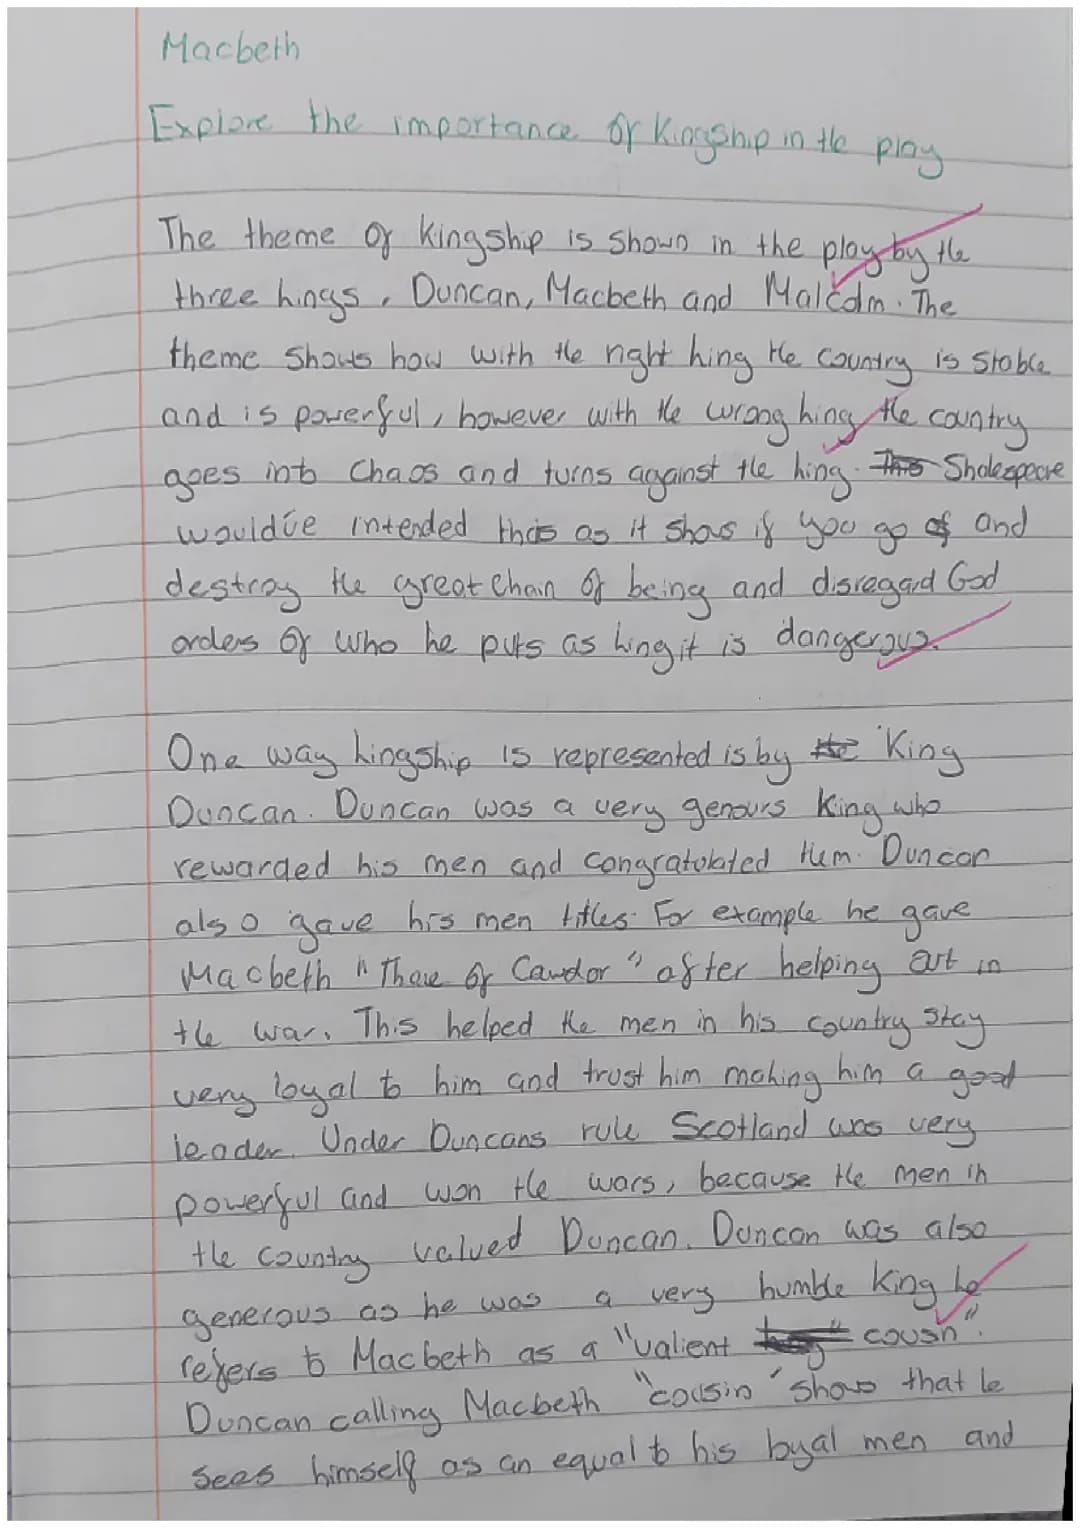 Macbeth
Explore the importance of Kingship in the play
The theme of kingship is shown in the play by the
three kings, Duncan, Macbeth and Malcolm. The
theme shows how with the right king the country is stable
and is powerful, however with the wrong king the country
goes into chaos and turns against the king. This Shakespeare
would've intended this as it shows if you go of and
destroy the great chain of being and disregard God
orders of who he puts as king it is dangerous.
One way kingship is represented is by the King
Duncan. Duncan was a very genours king who
rewarded his men and congratulated them. Duncan
also gave his men titles. For example he gave
Macbeth "Thane of Cawdor" after helping out in
the war. This helped the men in his country stay
very loyal to him and trust him making him a good
leader. Under Duncans rule Scotland was very
powerful and won the wars, because the men in
the country valued Duncan. Duncan was also
generous as he was a very humble king he
refers to Macbeth as a "valient cousn".
Duncan calling Macbeth "cousin" shows that he
sees himself as an equal to his loyal men and